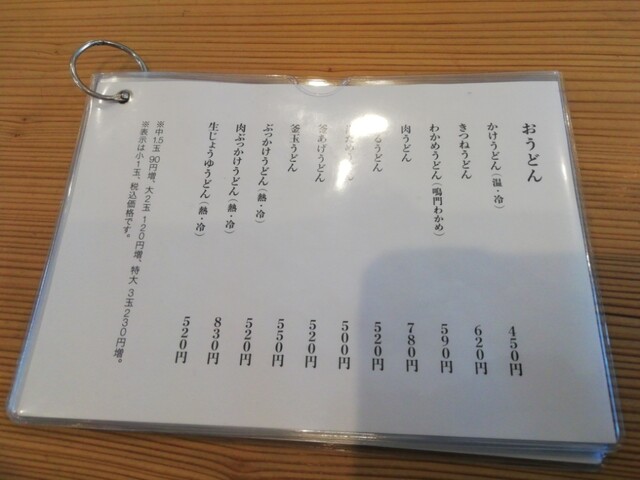 おうどん
かけうどん（温・冷） 450円
きつねうどん 620円
わかめうどん（鳴門わかめ） 590円
肉うどん 780円
520円
500円
釜あげうどん 520円
釜玉うどん 550円
ぶっかけうどん（熱・冷） 520円
肉ぶっかけうどん（熱・冷） 830円
生じょうゆうどん（熱・冷） 520円
※中1.5玉 90円増、大2玉 120円増、特大 3玉230円増。
※表示は小1玉、税込価格です。